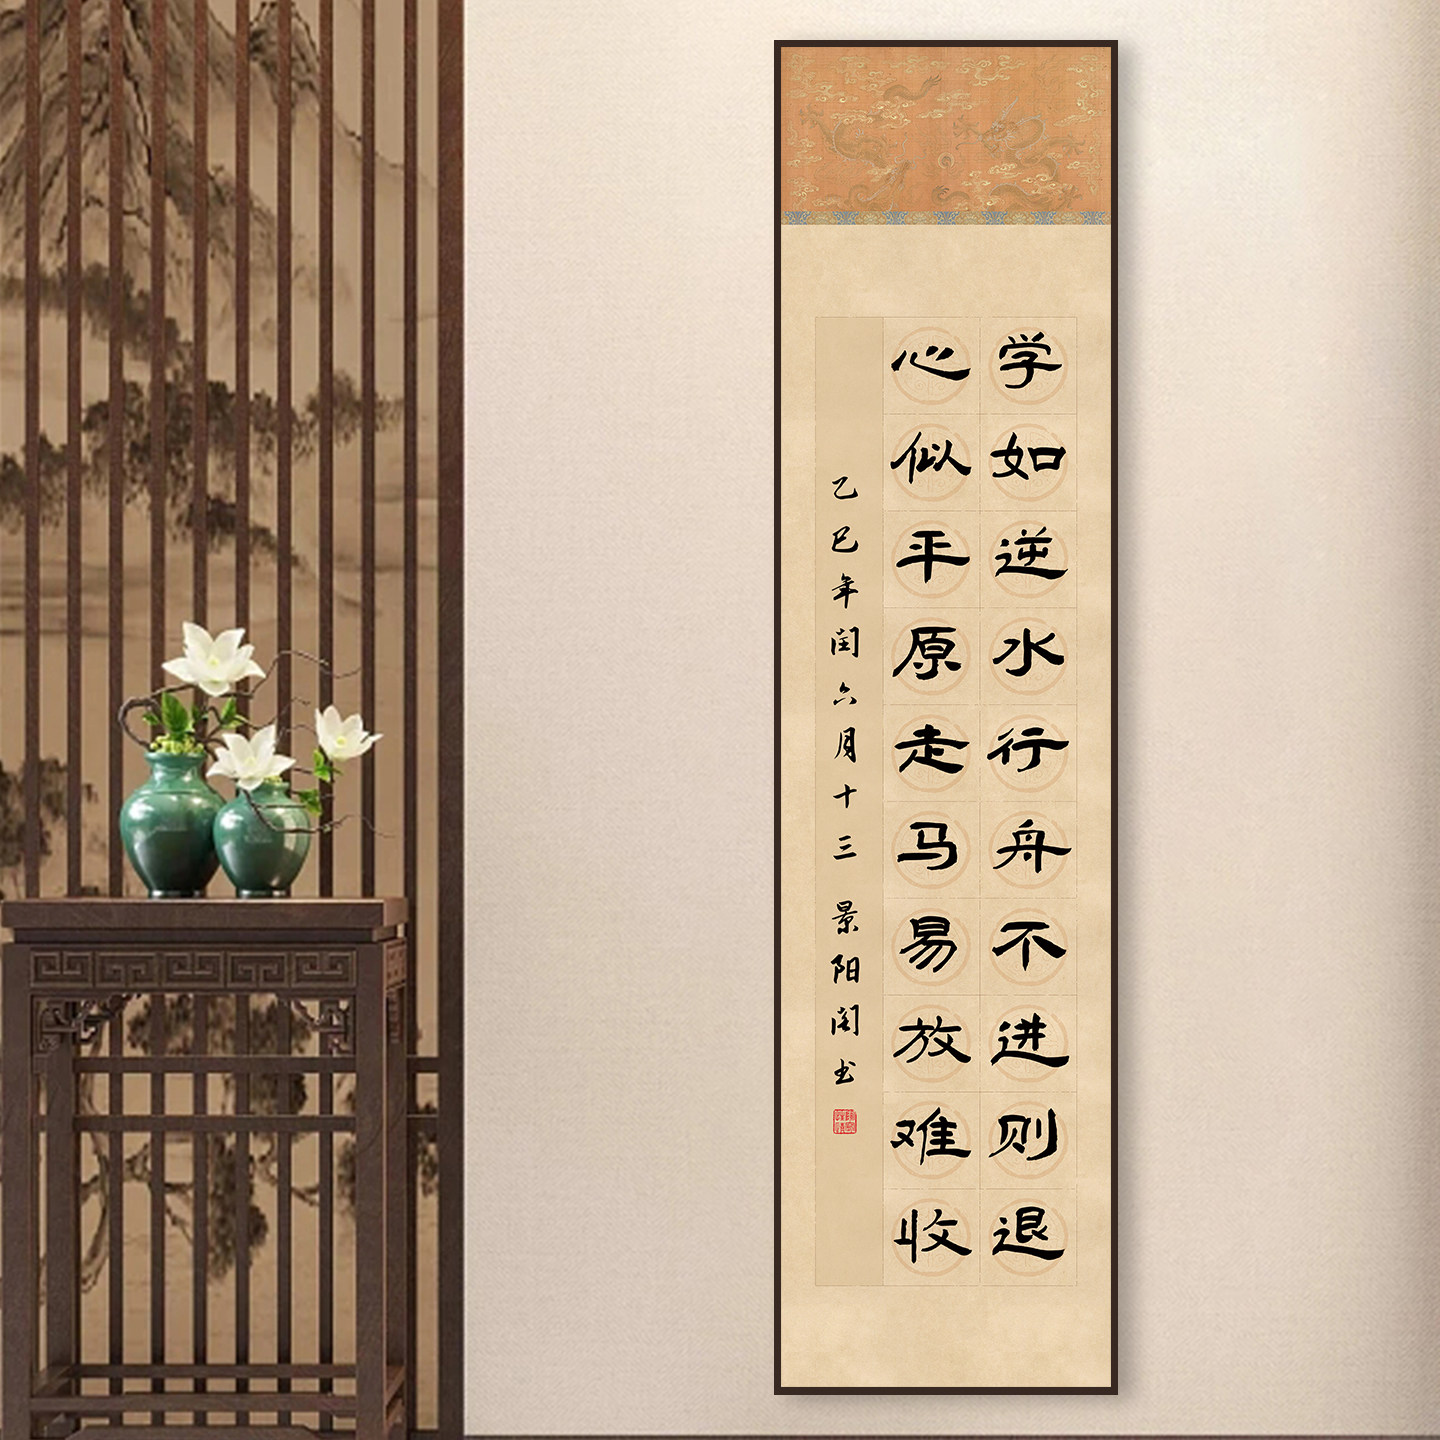 学如逆水行舟不进则退
心似平原走马易放难收
乙巳年闰六月十三 景阳阁书